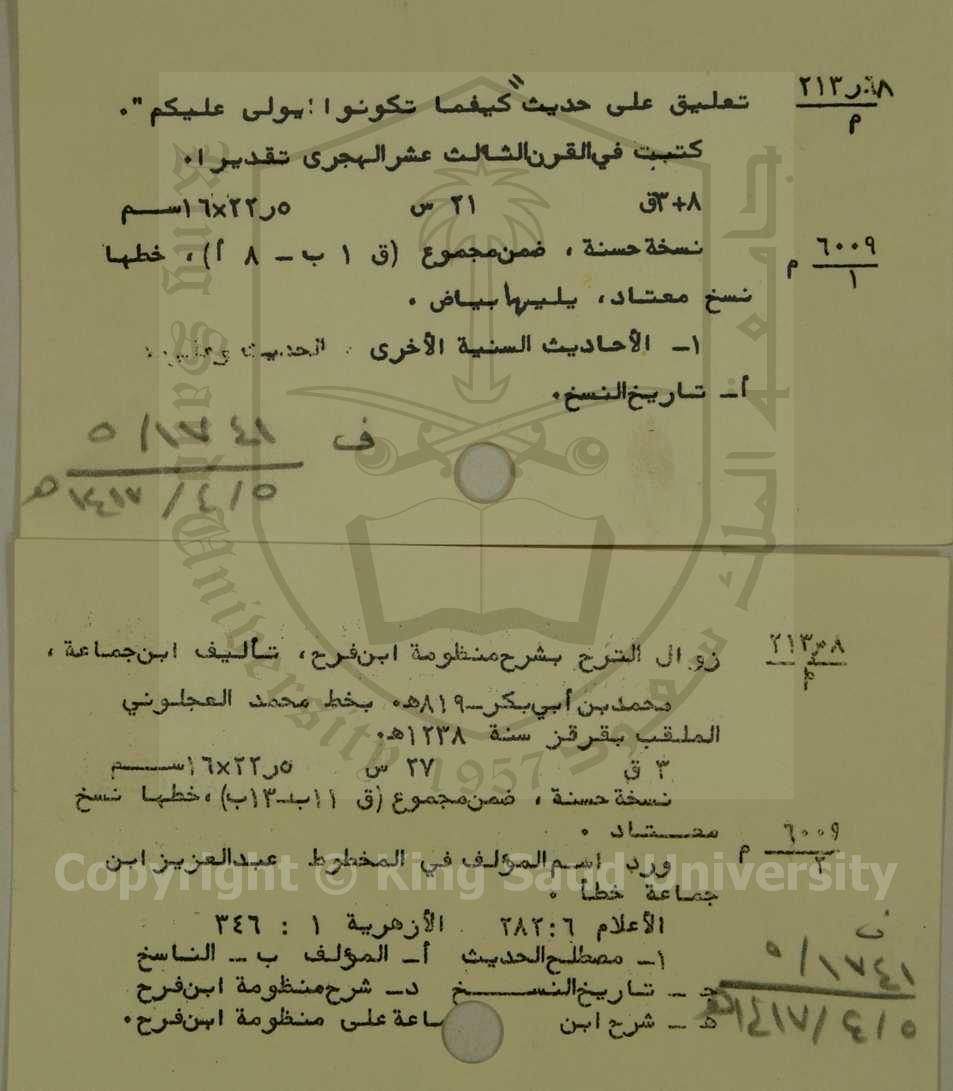 ٢١٣ر٠٦٨
م
تعليق على حديث "كيفما تكونوا ! يولى عليكم".
كتبت في القرن الثالث عشر الهجرى تقديرا.
٨+٣ق ٢١ س ٥ر٢٢×١٦ســم
نسخة حسنة ، ضمن مجموع (ق ١ ب ـ ٨ أ)، خطها
٦٠٠٩
١ م
نسخ معتاد، يليها بياض .
١ـ الأحاديث السنية الأخرى .
أـ تاريخ النسخ.
ف
٥ / ٤ / ١٤١٧ هـ
زوال الترح بشرح منظومة ابن فرح، تأليف ابن جماعة ،
م
محمد بن أبي بكر ـ ٨١٩هـ. بخط محمد العجلوني
الملقب بقرقز سنة ١٢٣٨هـ.
٣ ق ٢٧ س ٥ر٢٢×١٦ســم
نسخة حسنة ، ضمن مجموع (ق ١١ب-١٣ب)، خطها نسخ
معـتـاد .
٦٠٠٩
٢ م
ورد اسم المؤلف في المخطوط عبدالعزيز ابن
جماعة خطأ .
الأعلام ٦:٢٨٢ الأزهرية ١ : ٣٤٦
١ـ مصطلح الحديث أـ المؤلف ب ـ الناسخ
جـ ـ تاريخ النســـخ دـ شرح منظومة ابن فرح
هـ ـ شرح ابن ـاعة على منظومة ابن فرح.
ف
King Saud University
1957
جامعة الملك سعود
Copyright © King Saud University